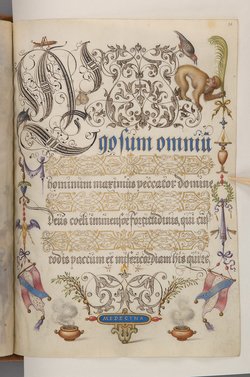 Ego sum omniū
hominum maximus peccator domine
Deus coeli immensae fortitudinis, qui cus
todis pactum et misericordiam his qui te
MEDECYNA